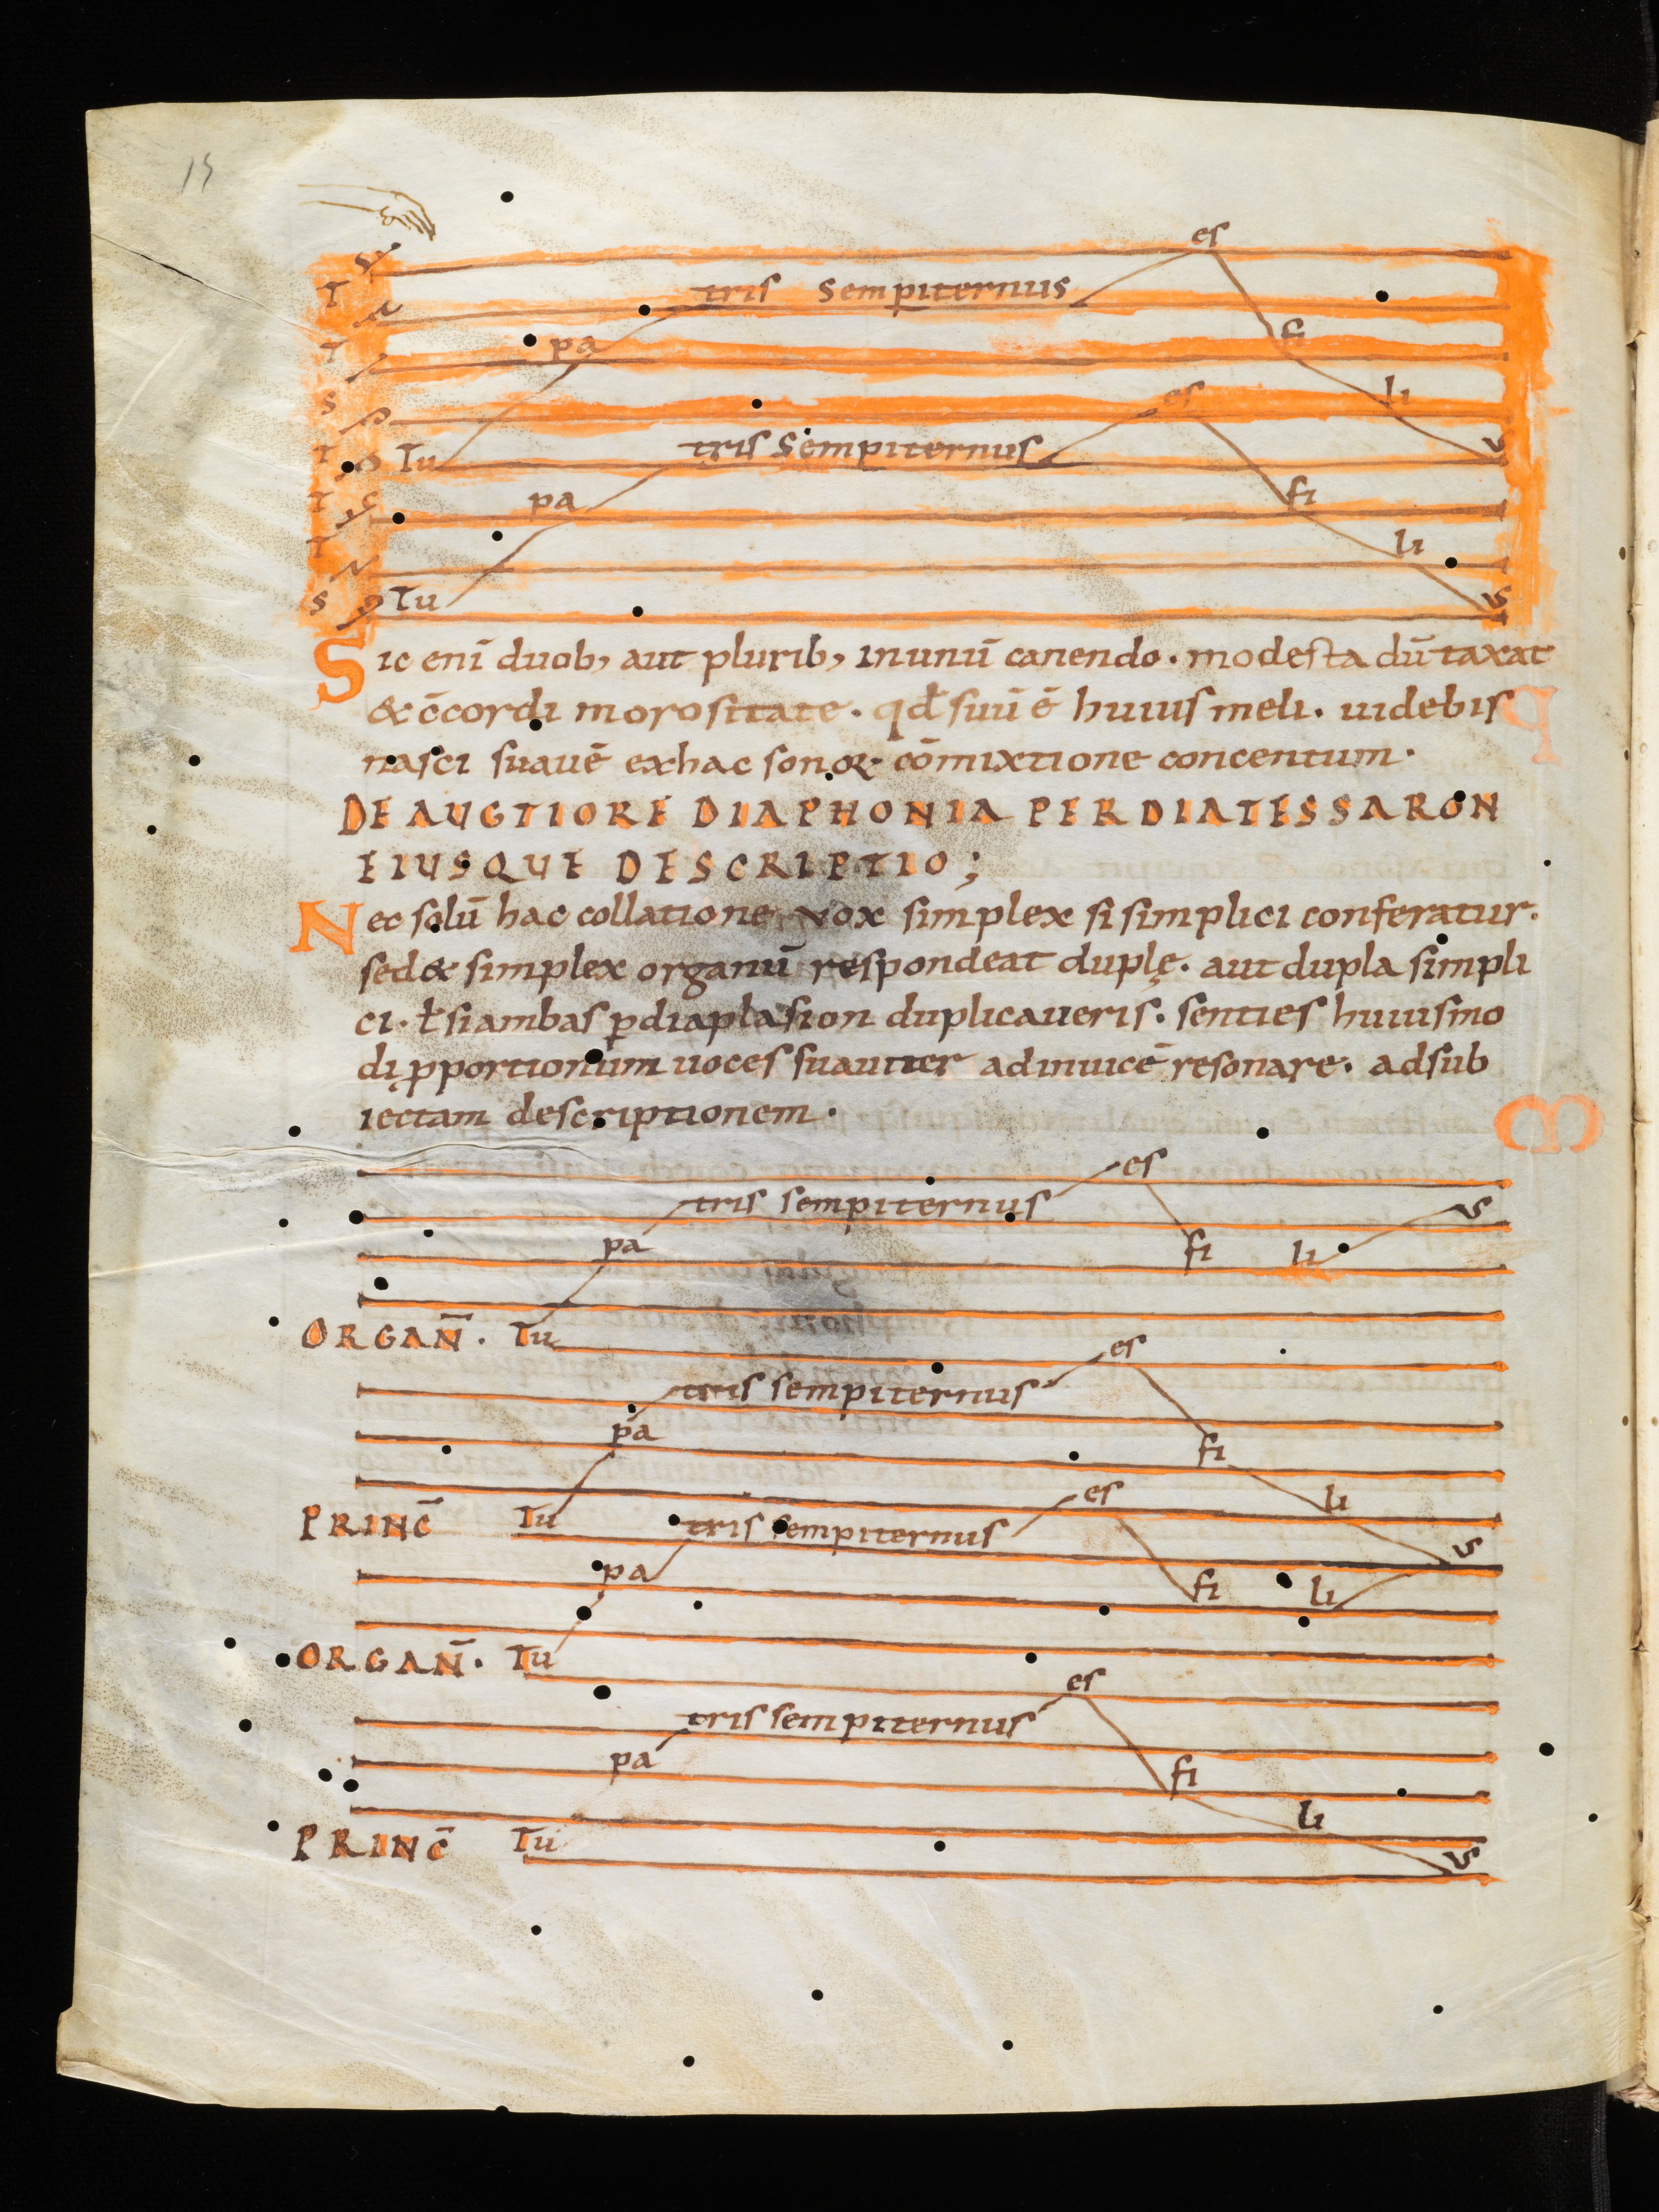 15
es
T tris sempiternus
T pa fi
S es li
T Tu tris Sempiternus s
T pa fi
T li
S Tu s
Sic enī duob, aut plurib, inunū canendo. modesta dū taxat
& c̄cordi morositate. qđ suū ē huius meli. uidebis
nasci suauē exhac sonoꝝ cōmixtione concentum.
DE AUGTIORE DIAPHONIA PER DIATESSARON
EIUSQUE DESCRIPTIO;
Nec solū hac collatione, vox simplex si simplici conferatur.
sed & simplex organū respondeat duplę. aut dupla simpli
ci. ł si ambas ꝑdiaplasion duplicaueris. senties huiusmo
di ꝓportionum uoces suauiter adinuicē resonare. adsub
iectam descriptionem.
es
tris sempiternus s
pa fi li
ORGAN̄. Tu
es
tris sempiternus
pa fi
es li
PRINC̄ Tu tris sempiternus s
pa fi li
ORGAN̄. Tu
es
tris sempiternus
pa fi
li
PRINC̄ Tu s